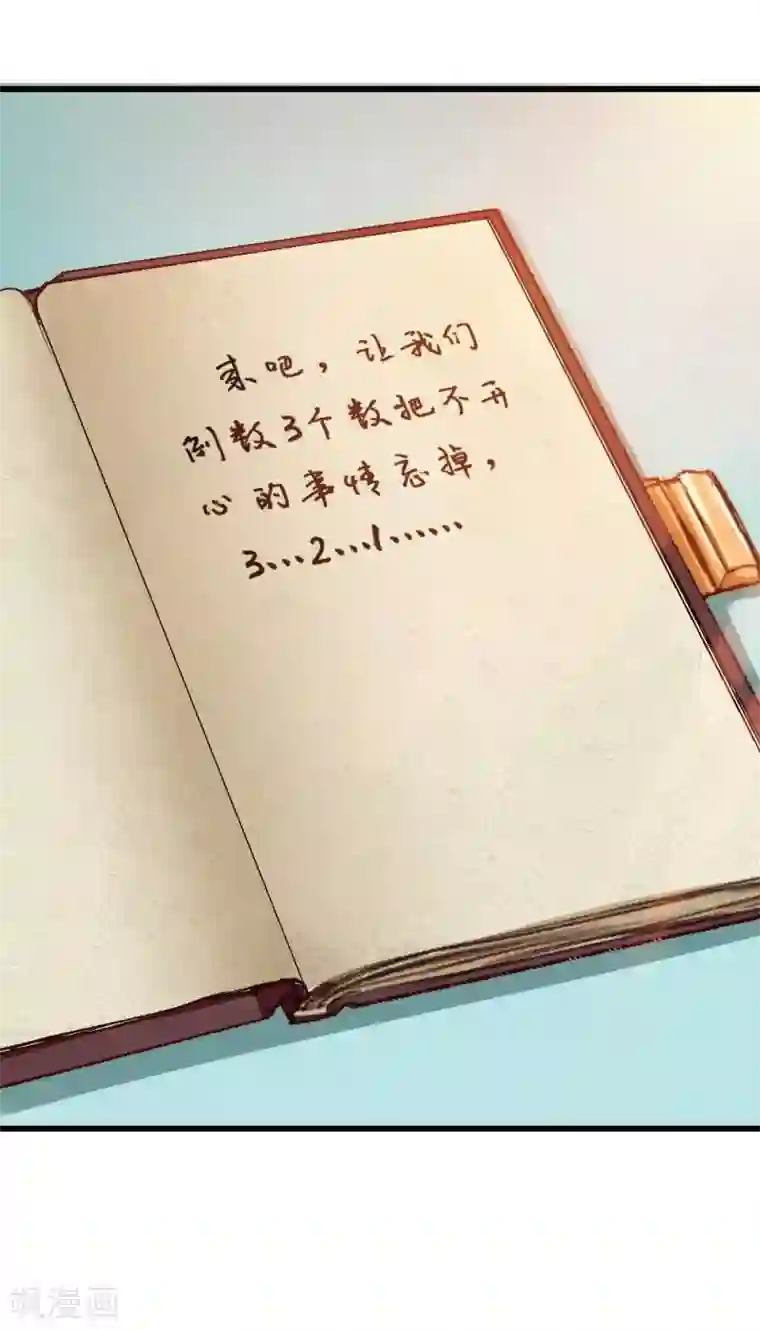 来吧，让我们
倒数3个数把不开
心的事情忘掉，
3…2…1……
飒漫画